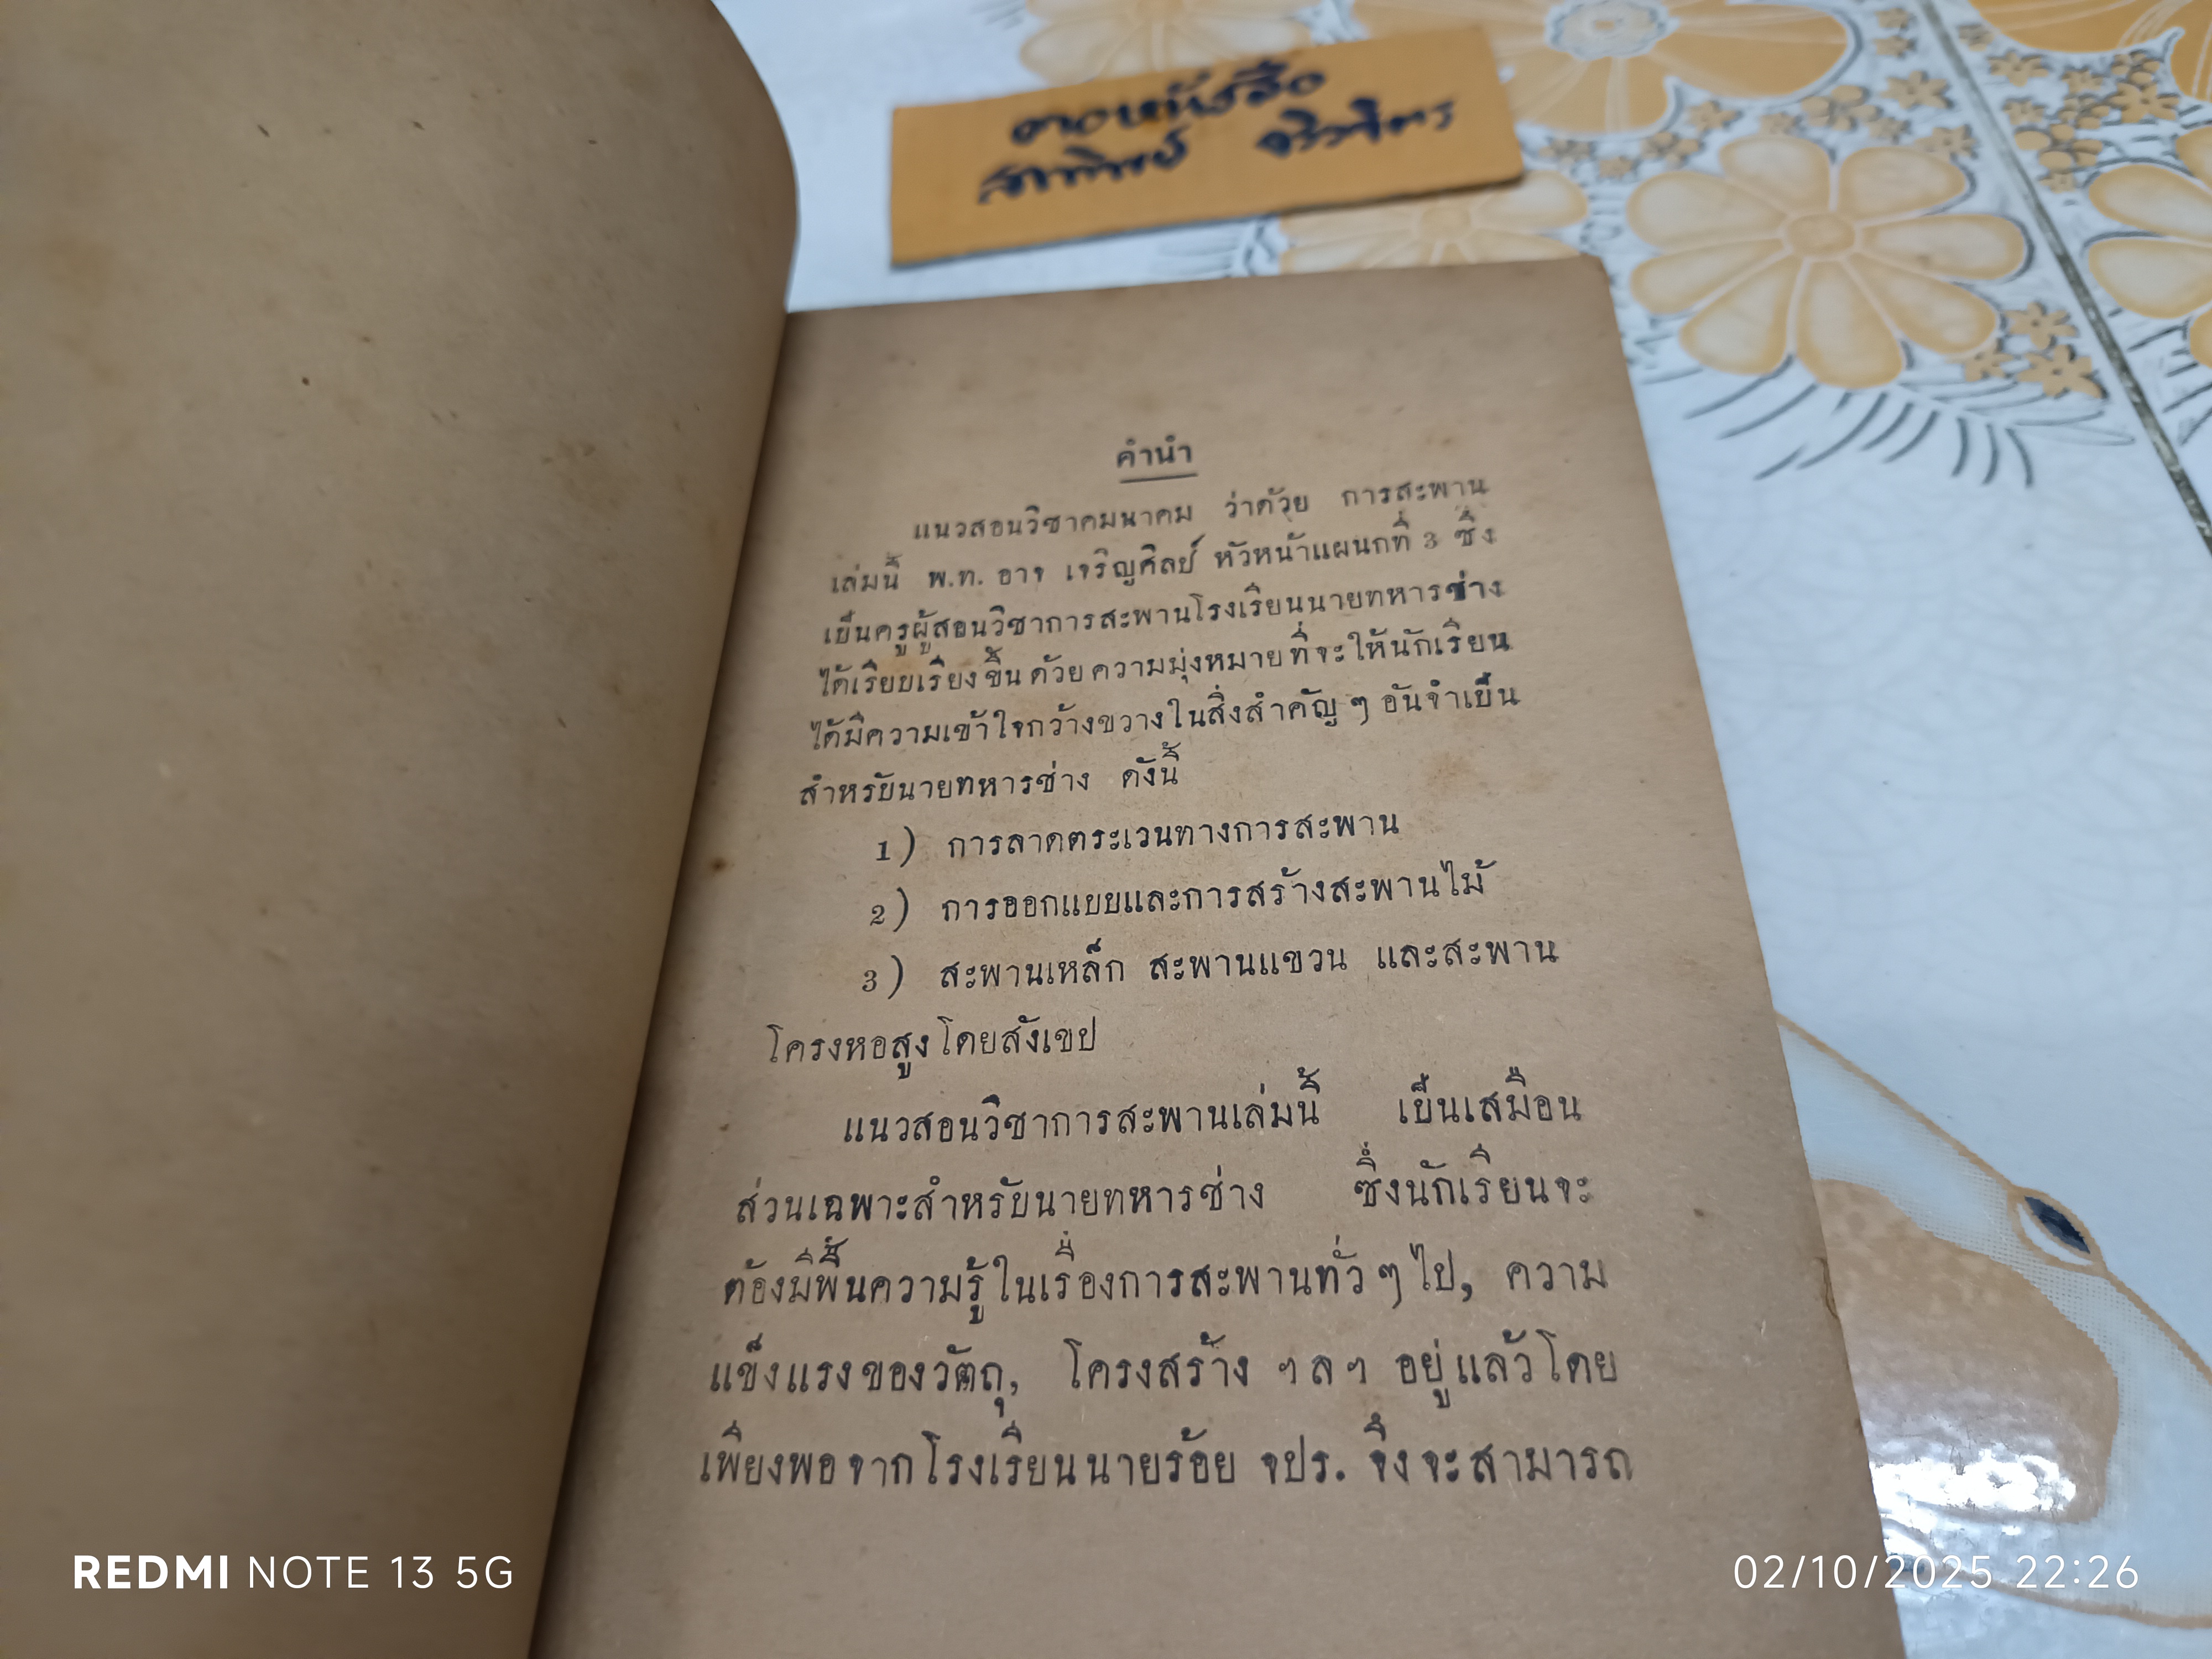 คอหนังสือ
คำนำ
แนวสอนวิชาคมนาคม ว่าด้วย การสะพาน
เล่มนี้ พ.ท. อาจ เจริญศิลป์ หัวหน้าแผนกที่ 3 ซึ่ง
เป็นครูผู้สอนวิชาการสะพานโรงเรียนนายทหารช่าง
ได้เรียบเรียงขึ้นด้วยความมุ่งหมายที่จะให้นักเรียน
ได้มีความเข้าใจกว้างขวางในสิ่งสำคัญ ๆ อันจำเป็น
สำหรับนายทหารช่าง ดังนี้
1) การลาดตระเวนทางการสะพาน
2) การออกแบบและการสร้างสะพานไม้
3) สะพานเหล็ก สะพานแขวน และสะพาน
โครงหอสูงโดยสังเขป
แนวสอนวิชาการสะพานเล่มนี้ เป็นเสมือน
ส่วนเฉพาะสำหรับนายทหารช่าง ซึ่งนักเรียนจะ
ต้องมีพื้นความรู้ในเรื่องการสะพานทั่ว ๆ ไป, ความ
แข็งแรงของวัตถุ, โครงสร้าง ฯลฯ อยู่แล้วโดย
เพียงพอจากโรงเรียนนายร้อย จปร. จึงจะสามารถ
REDMI NOTE 13 5G
02/10/2025 22:26